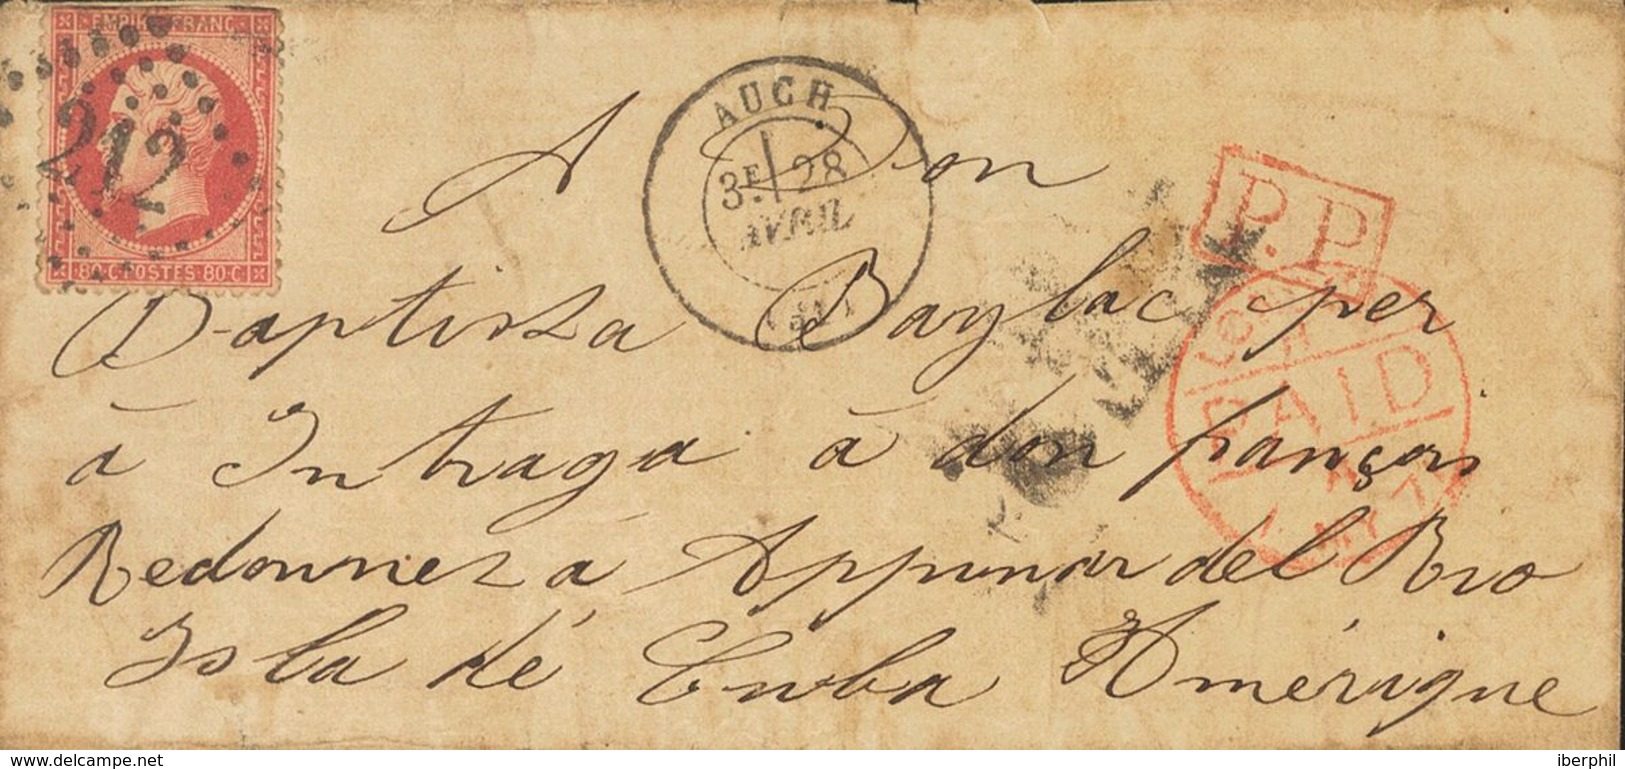 EMPIRE FRANC
212
80·C POSTES 80·C
AUCH
3E 28
AVRIL
P.P.
PAID
A Don
Baptista Baylac per
à Intraga à don françois
Redonnez à del Rio
Isla dé Cuba Amérique
delcampe.net
iberphil